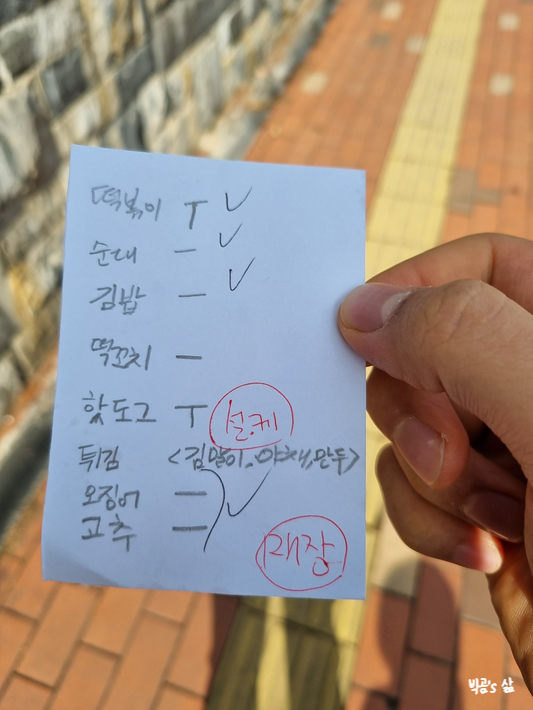 떡볶이 ㅜ ✓
순대 ㅡ ✓
김밥 ㅡ ✓
떡꼬치 ㅡ
핫도그 ㅜ 설.케
튀김 <김말이, 야채, 만두>
오징어 ㅡ ✓
고추 ㅡ
매장
빅곰's 삶